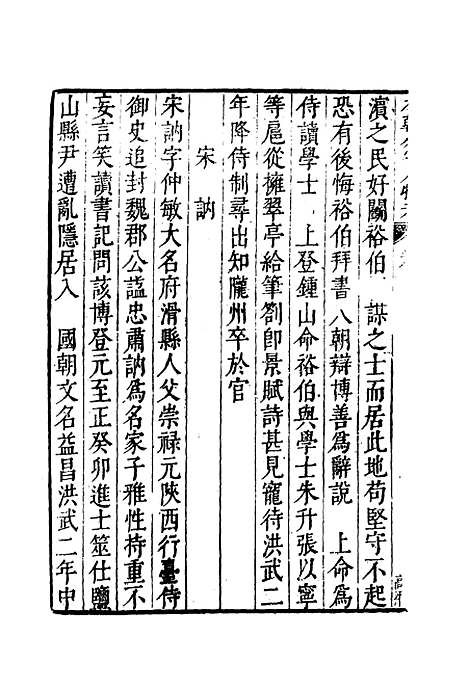 濱之民好鬭裕伯 謀之士而居此地苟堅守不起
恐有後悔裕伯拜書 八朝辯博善為辭說 上命為
侍讀學士 上登鍾山命裕伯與學士朱升張以寧
等扈從擁翠亭給筆劄即景賦詩甚見寵待洪武二
年降侍制尋出知隴州卒於官
宋訥
宋訥字仲敏大名府滑縣人父崇禄元陜西行臺侍
御史追封魏郡公謚忠肅訥為名家子雅性持重不
妄言笑讀書記問該博登元至正癸卯進士筮仕鹽
山縣尹遭亂隱居入 國朝文名益昌洪武二年中